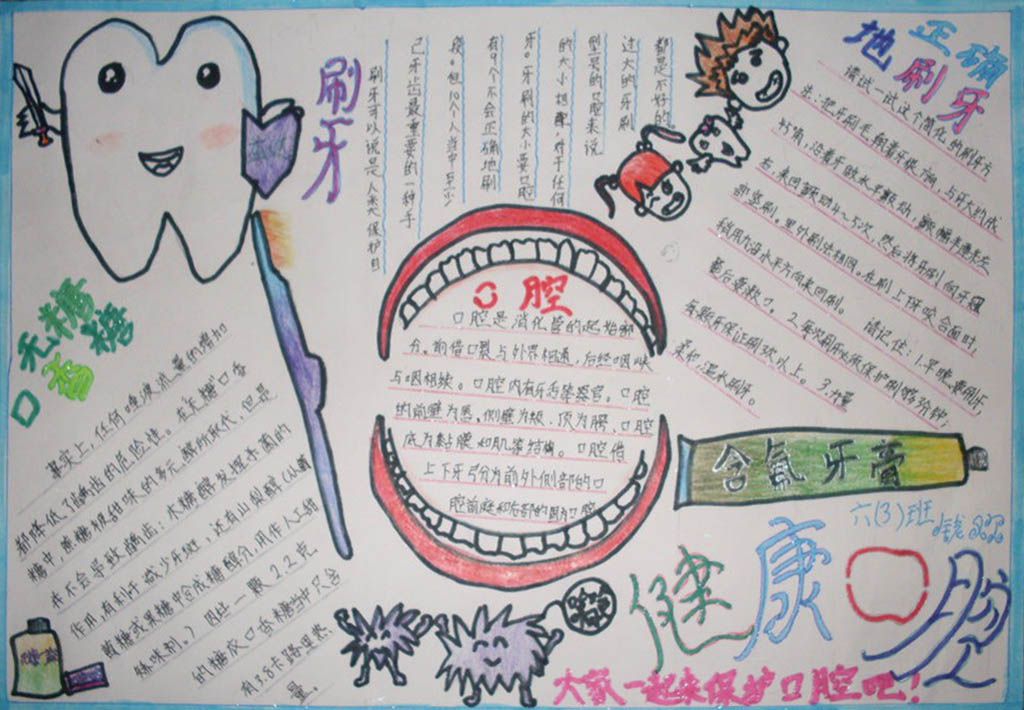 刷牙
刷牙可以说是人类保护自
己牙齿最重要的一种手
段。但10个人当中至少
有9个不会正确地刷
牙。牙刷的大小要口腔
的大小相配,对于任何
型号的口腔来说
过大的牙刷
都是不好的
正确
地刷牙
请试一试这个简化的刷牙方
法:把牙刷毛朝着牙根下倾,与牙大约成
竹角,沿着牙龈水平颤动,
右,来回颤动4~5次,然后将牙刷向牙冠
部竖刷。里外刷法相同。在刷上牙咬合面时,
稍用力沿水平方向来回刷。
最后要漱口。2.每次刷牙必须保护刷够3分钟;
请记住:1.早晚要刷牙,
有般牙保证刷3次以上。3.水量
柔和,温水刷牙。
口腔
口腔是消化管的起始部
分。前借口裂与外界相通,后经咽峡
与咽相续。口腔内有牙舌等器官。口腔
的前壁为唇、侧壁为颊、顶为腭、口腔
底为黏膜和肌等结构。口腔借
上下牙弓分为前外侧部的口
腔前庭和后部的固有口腔
无糖
口香糖
其实上,任何唾液流量的增加
都降低了龋齿的危险性。在无糖口香
糖中,蔗糖被甜味的多元醇所取代,但是
并不会导致龋齿:木糖醇发挥杀菌的
作用,有利于减少牙斑,还有山梨醇(从葡
萄糖或果糖中合成糖醇介,用作人工甜
味剂。)因此一颗2.2克
的糖衣口香糖当中只含
有3.8卡路里热
量。
含氟牙膏
六(3)班
健康口腔
大家一起来保护口腔吧!